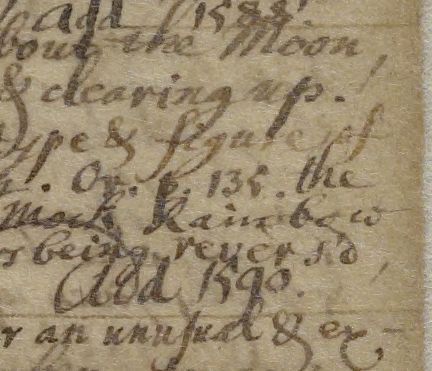 Add 1588.
bout the Moon,
& clearing up.
type & figure of
. Or. p. 135. the
Mock Rainbow
being revers'd,
Add 1590.
r an unusual & ex-